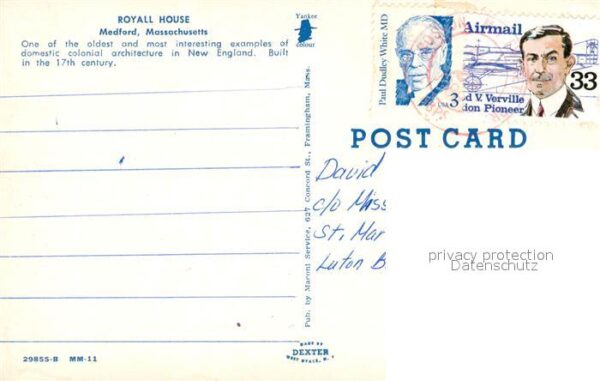 ROYALL HOUSE
Medford, Massachusetts
One of the oldest and most interesting examples of
domestic colonial architecture in New England. Built
in the 17th century.
Yankee
colour
Paul Dudley White MD
USA 3
Airmail
33
d V. Verville
ion Pioneer
POST CARD
David
c/o Miss
St. Mar
Luton B
privacy protection
Datenschutz
Pub. by Maroni Service, 627 Concord St., Framingham, Mass.
MADE BY
DEXTER
WEST NYACK, N.Y.
29855-B MM-11